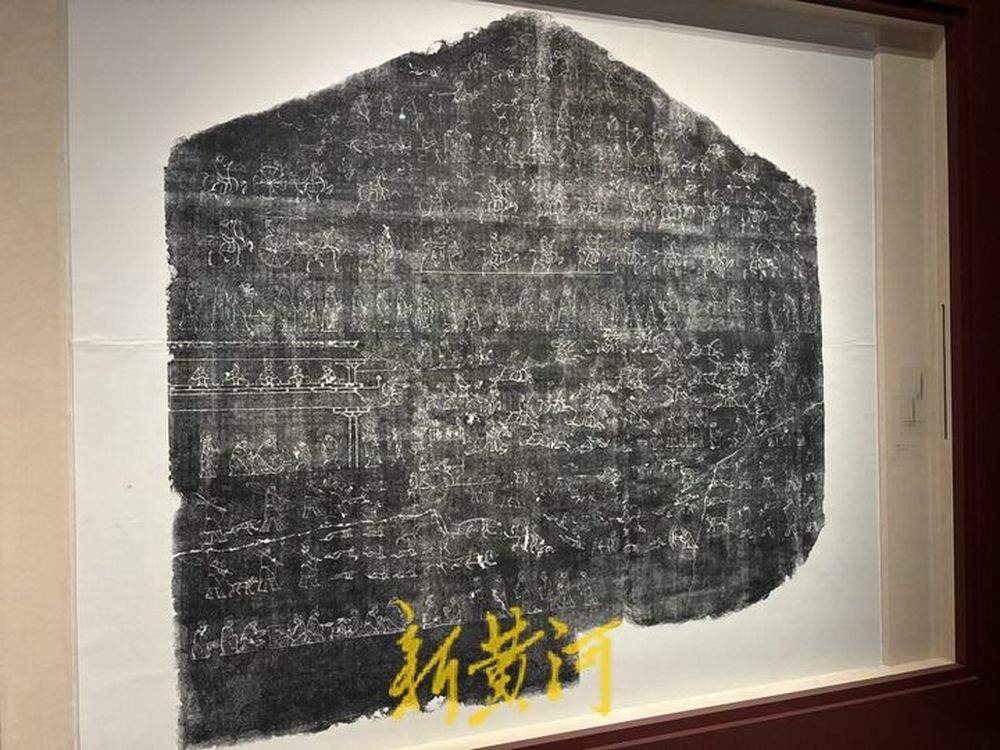 新黄河